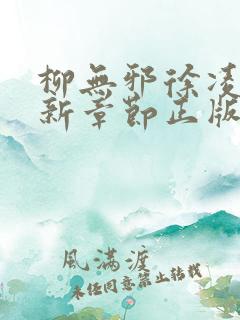 柳無邪徐凌
新章節正版
風滿渡
未经同意禁止转载